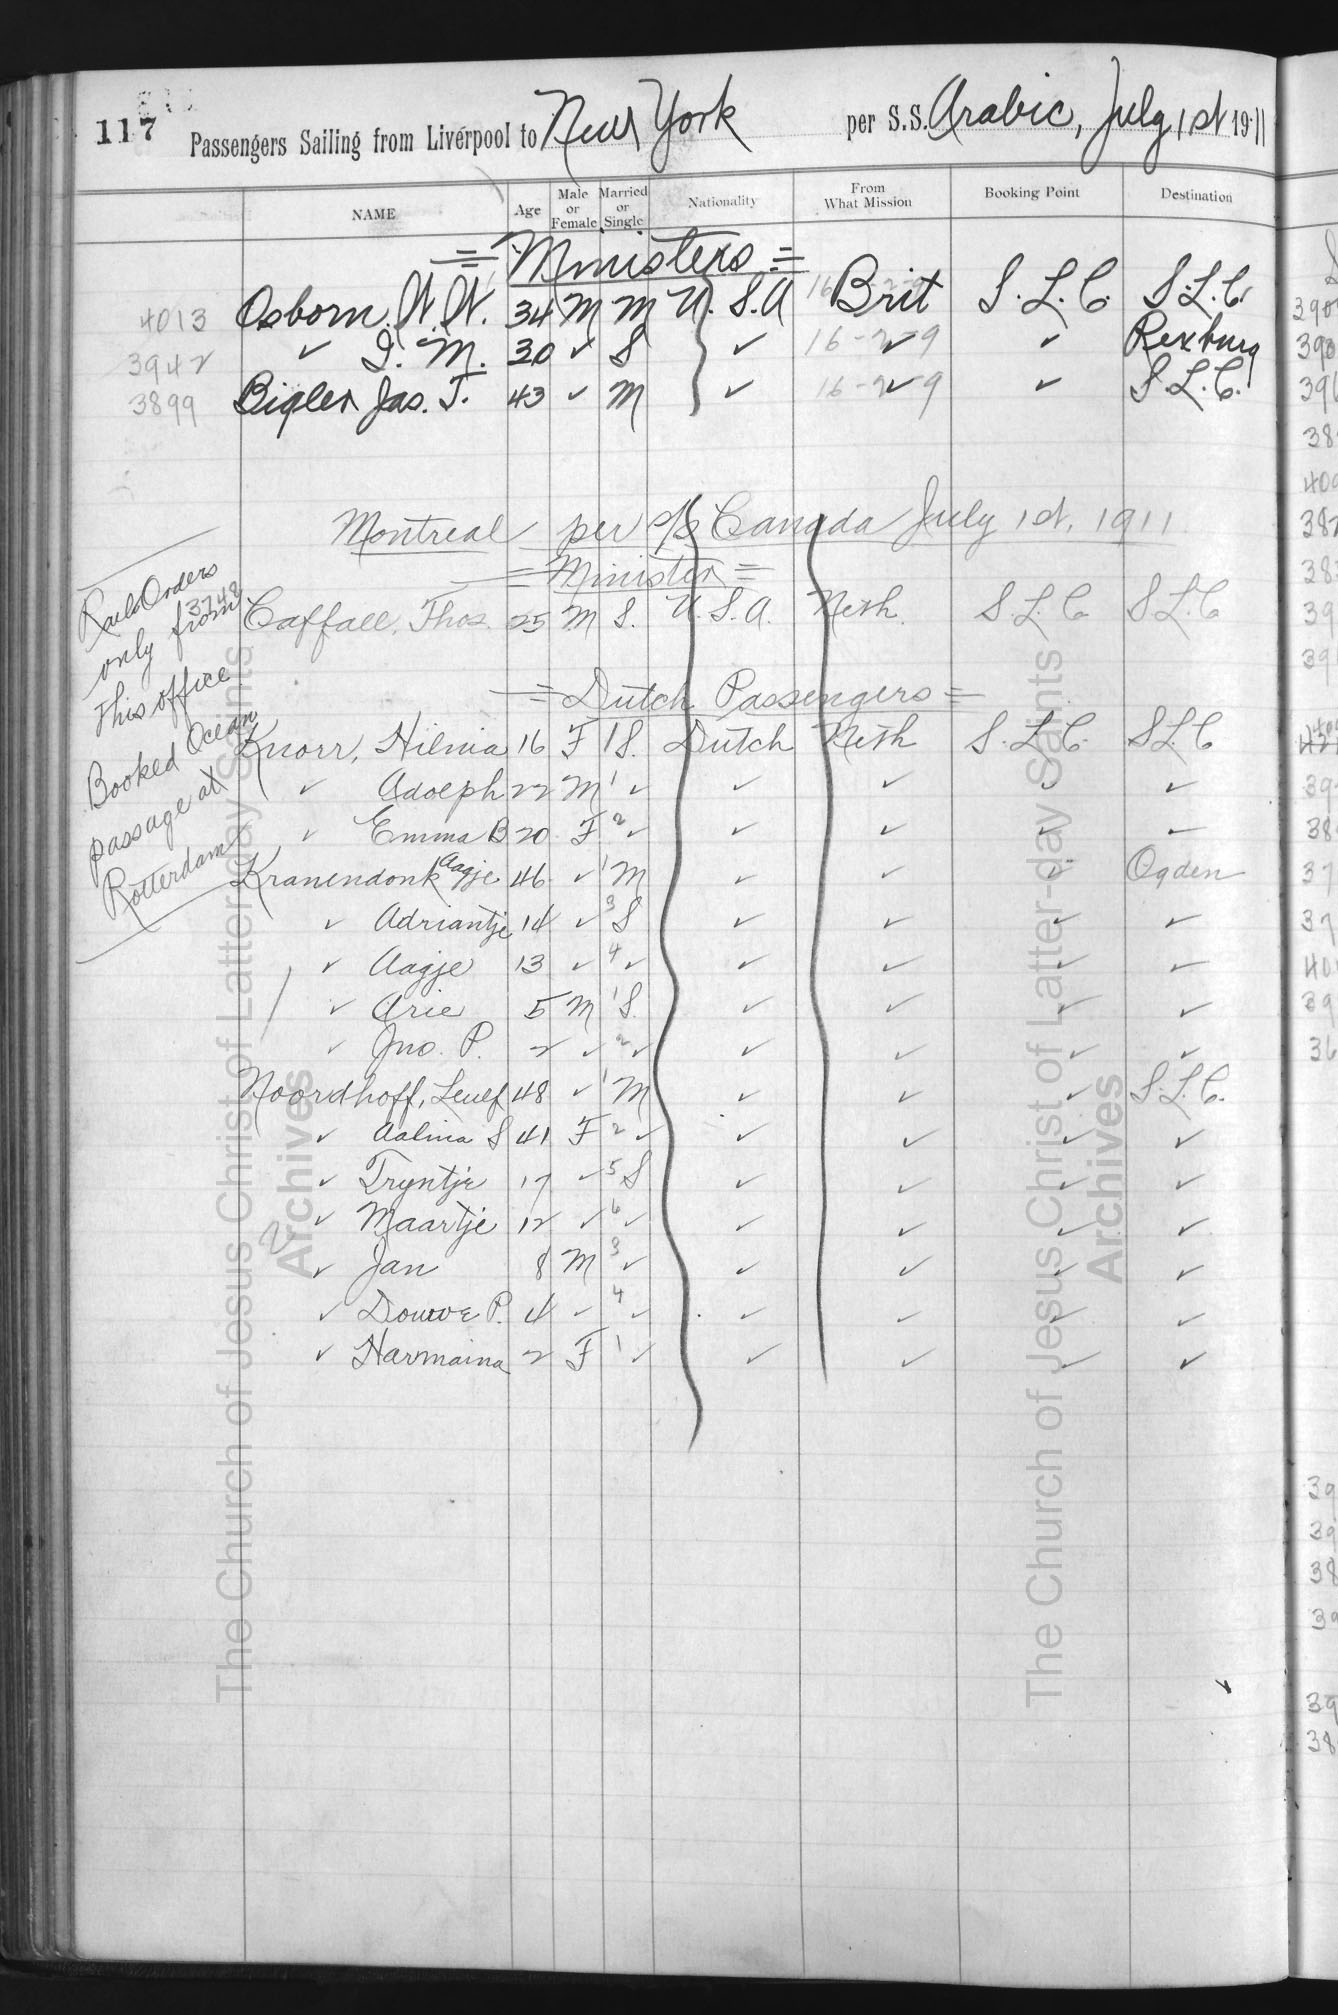 117 Passengers Sailing from Liverpool to New York per S.S. Arabic, July 1st 1911
NAME Age Male or Female Married or Single Nationality From What Mission Booking Point Destination
= Ministers =
4013 Osborn, W. W. 34 M M U. S. A Brit S. L. C. S. L. C.
3942 ✓ I. M. 30 ✓ S ✓ 16-2-9 ✓ ✓ Rexburg
3899 Bigler Jas. T. 43 ✓ M ✓ 16-2-9 ✓ ✓ S. L. C.
Montreal per s/s Canada July 1st, 1911
= Minister =
3748 Caffall, Thos. 25 M S. U. S. A. Neth. S. L. C. S. L. C
= Dutch Passengers =
Knorr, Hilmia 16 F 1 S. Dutch Neth S. L. C. S L C
✓ Adolph 22 M 1 ✓ ✓ ✓ ✓ ✓
✓ Emma B 20 F 2 ✓ ✓ ✓ ✓ ✓
Kranendonk Aagje 46 ✓ 1 M ✓ ✓ ✓ Ogden
✓ Adriantje 14 ✓ 3 S ✓ ✓ ✓ ✓
✓ Aagje 13 ✓ 4 ✓ ✓ ✓ ✓ ✓
✓ Arie 5 M 1 S. ✓ ✓ ✓ ✓
✓ Jno. P. 2 ✓ 2 ✓ ✓ ✓ ✓ ✓
Noordhoff, Leulf 48 ✓ 1 M ✓ ✓ ✓ S. L. C.
✓ Aalina S 41 F 2 ✓ ✓ ✓ ✓ ✓
✓ Tryntje 17 ✓ 5 S ✓ ✓ ✓ ✓
✓ Maartje 12 ✓ 6 ✓ ✓ ✓ ✓ ✓
✓ Jan 8 M 3 ✓ ✓ ✓ ✓ ✓
✓ Douwe P. 4 ✓ 4 ✓ ✓ ✓ ✓ ✓
✓ Harmaina 2 F 1 ✓ ✓ ✓ ✓ ✓
Rail Orders
only from
this office
Booked Ocean
passage at
Rotterdam
The Church of Jesus Christ of Latter-day Saints
Archives
The Church of Jesus Christ of Latter-day Saints
Archives